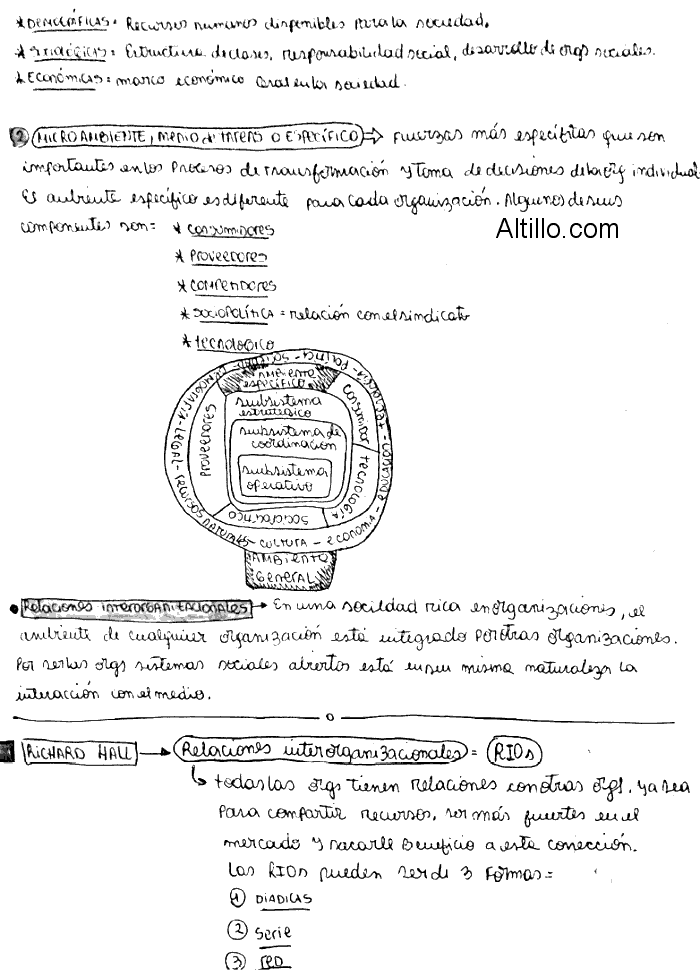 * DEMOGRÁFICAS = Recursos humanos disponibles para la sociedad.
* SOCIOLÓGICAS = Estructura de clases, responsabilidad social, desarrollo de orgs sociales.
* ECONÓMICAS = marco económico Gral en la sociedad.
2 MICROAMBIENTE, MEDIO de TAREAS O ESPECÍFICO => Fuerzas más específicas que son
importantes en los procesos de transformación y toma de decisiones de la org individual
El ambiente específico es diferente para cada organización. Algunos de sus
componentes son =
* CONSUMIDORES
Altillo.com
* PROVEEDORES
* COMPETIDORES
* SOCIOPOLÍTICA = relación con el sindicato
* TECNOLÓGICO
AMBIENTE
ESPECÍFICO
subsistema
estratégico
subsistema de
coordinación
subsistema
operativo
PROVEEDORES
CONSUMIDOR
TECNOLOGÍA
SOCIOPOLÍTICO
DEMOGRAFÍA - LEGAL - RECURSOS NATURALES - CULTURA - ECONOMÍA - EDUCACIÓN - TECNOLOGÍA - POLÍTICA -
AMBIENTE
GENERAL
• RELACIONES INTERORGANIZACIONALES → En una sociedad rica en organizaciones, el
ambiente de cualquier organización está integrado por otras organizaciones.
Por ser las orgs sistemas sociales abiertos está en su misma naturaleza la
interacción con el medio.
RICHARD HALL → Relaciones interorganizacionales = RIOs
todas las orgs tienen relaciones con otras orgs, ya sea
para compartir recursos, ser más fuertes en el
mercado y sacarle beneficio a esta conección.
Las RIOs pueden ser de 3 formas =
1 DIADICAS
2 Serie
3 RED